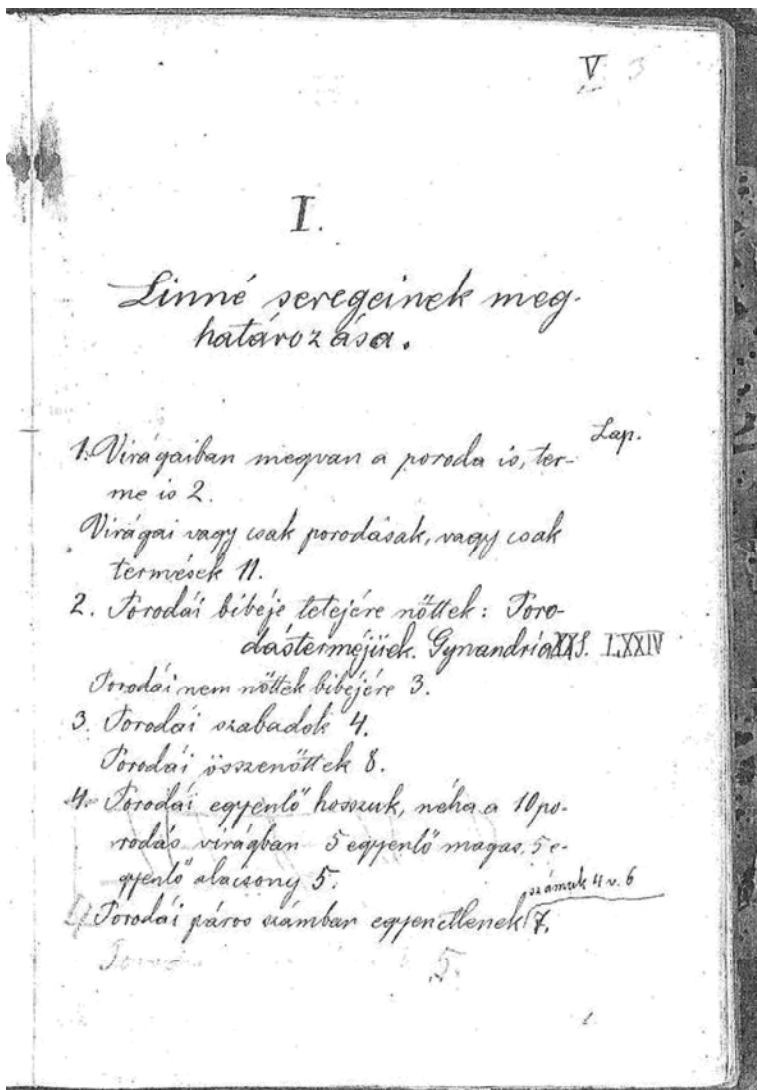 V 3
I.
Linné seregeinek meg-
határozása.
Lap.
1. Virágaiban megvan a poroda is, ter-
me is 2.
Virágai vagy csak porodásak, vagy csak
termések 11.
2. Porodái bibéje tetejére nőttek: Poro-
dásterméjüek. Gynandria XXS. LXXIV
Porodái nem nőttek bibéjére 3.
3. Porodái szabadok 4.
Porodái összenőttek 8.
4. Porodái egyenlő hosszuk, néha a 10 po-
rodás virágban 5 egyenlő magas, 5 e-
gyenlő alacsony 5.
számuk 4 v. 6
Porodái páros számban egyenetlenek 7.
5.